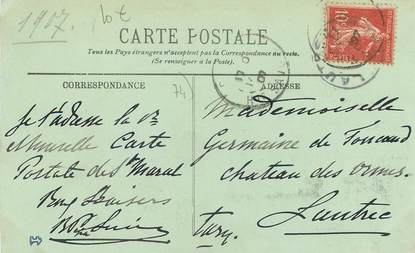 1907
10€
CARTE POSTALE
Tous les Pays étrangers n'acceptent pas la Correspondance au recto.
(Se renseigner à la Poste).
CORRESPONDANCE
74
Je t'adresse la
Carte
Postale de St Marcel
Baisers
ADRESSE
Mademoiselle
Germaine de Toucaud
chateau des ormes
Lautrec
Tarn
10